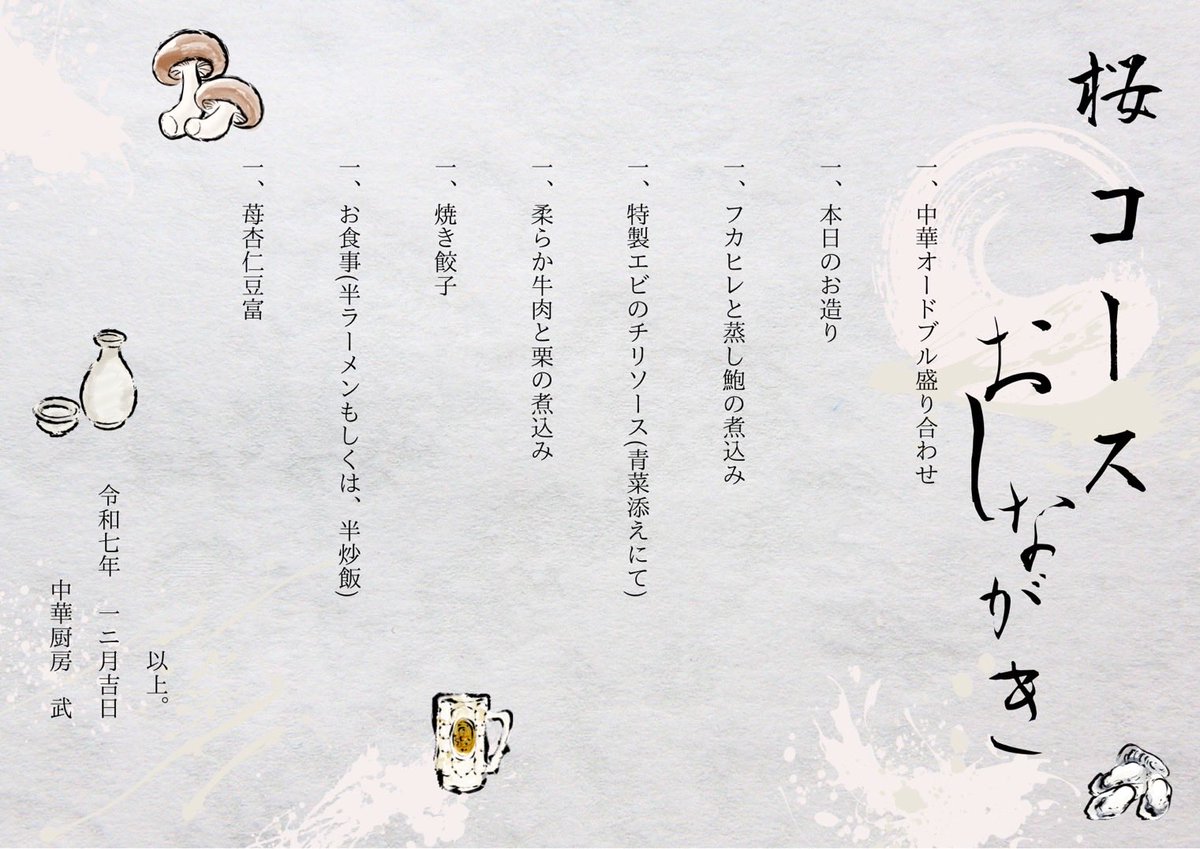 桜コース
おしながき
一、中華オードブル盛り合わせ
一、本日のお造り
一、フカヒレと蒸し鮑の煮込み
一、特製エビのチリソース(青菜添えにて)
一、柔らか牛肉と栗の煮込み
一、焼き餃子
一、お食事(半ラーメンもしくは、半炒飯)
一、苺杏仁豆富
以上。
令和七年　一二月吉日
中華厨房　武